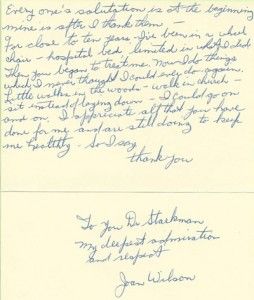 Every one's salutation is at the beginning
mine is after I thank them –
For close to ten years I've been in a wheel
chair – hospital bed limited in what I did
Then you began to treat me. Now I do things
which I never thought I could ever do again.
Little walks in the woods – walk in church –
sit instead of laying down – I could go on
and on. I appreciate all that you have
done for me and are still doing to keep
me healthy – So I say
thank you
To you Dr Starkman
my deepest admiration
and respect
Joan Wilson